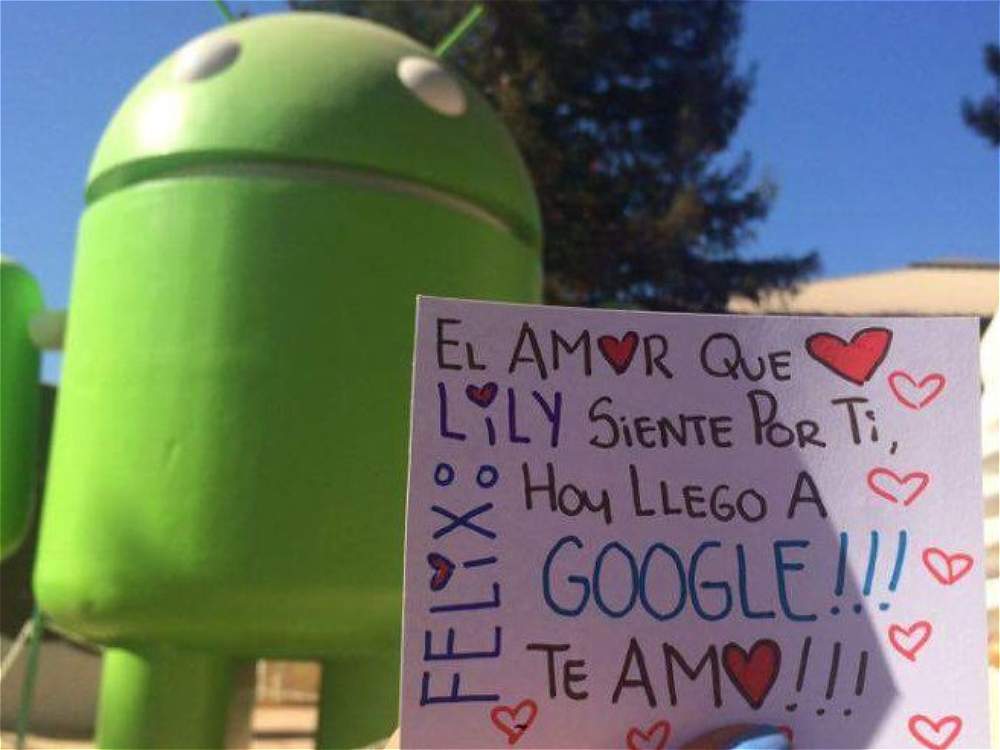 FELIX:
EL AMOR QUE
LILY SIENTE POR TI,
HOY LLEGO A
GOOGLE!!!
TE AMO!!!